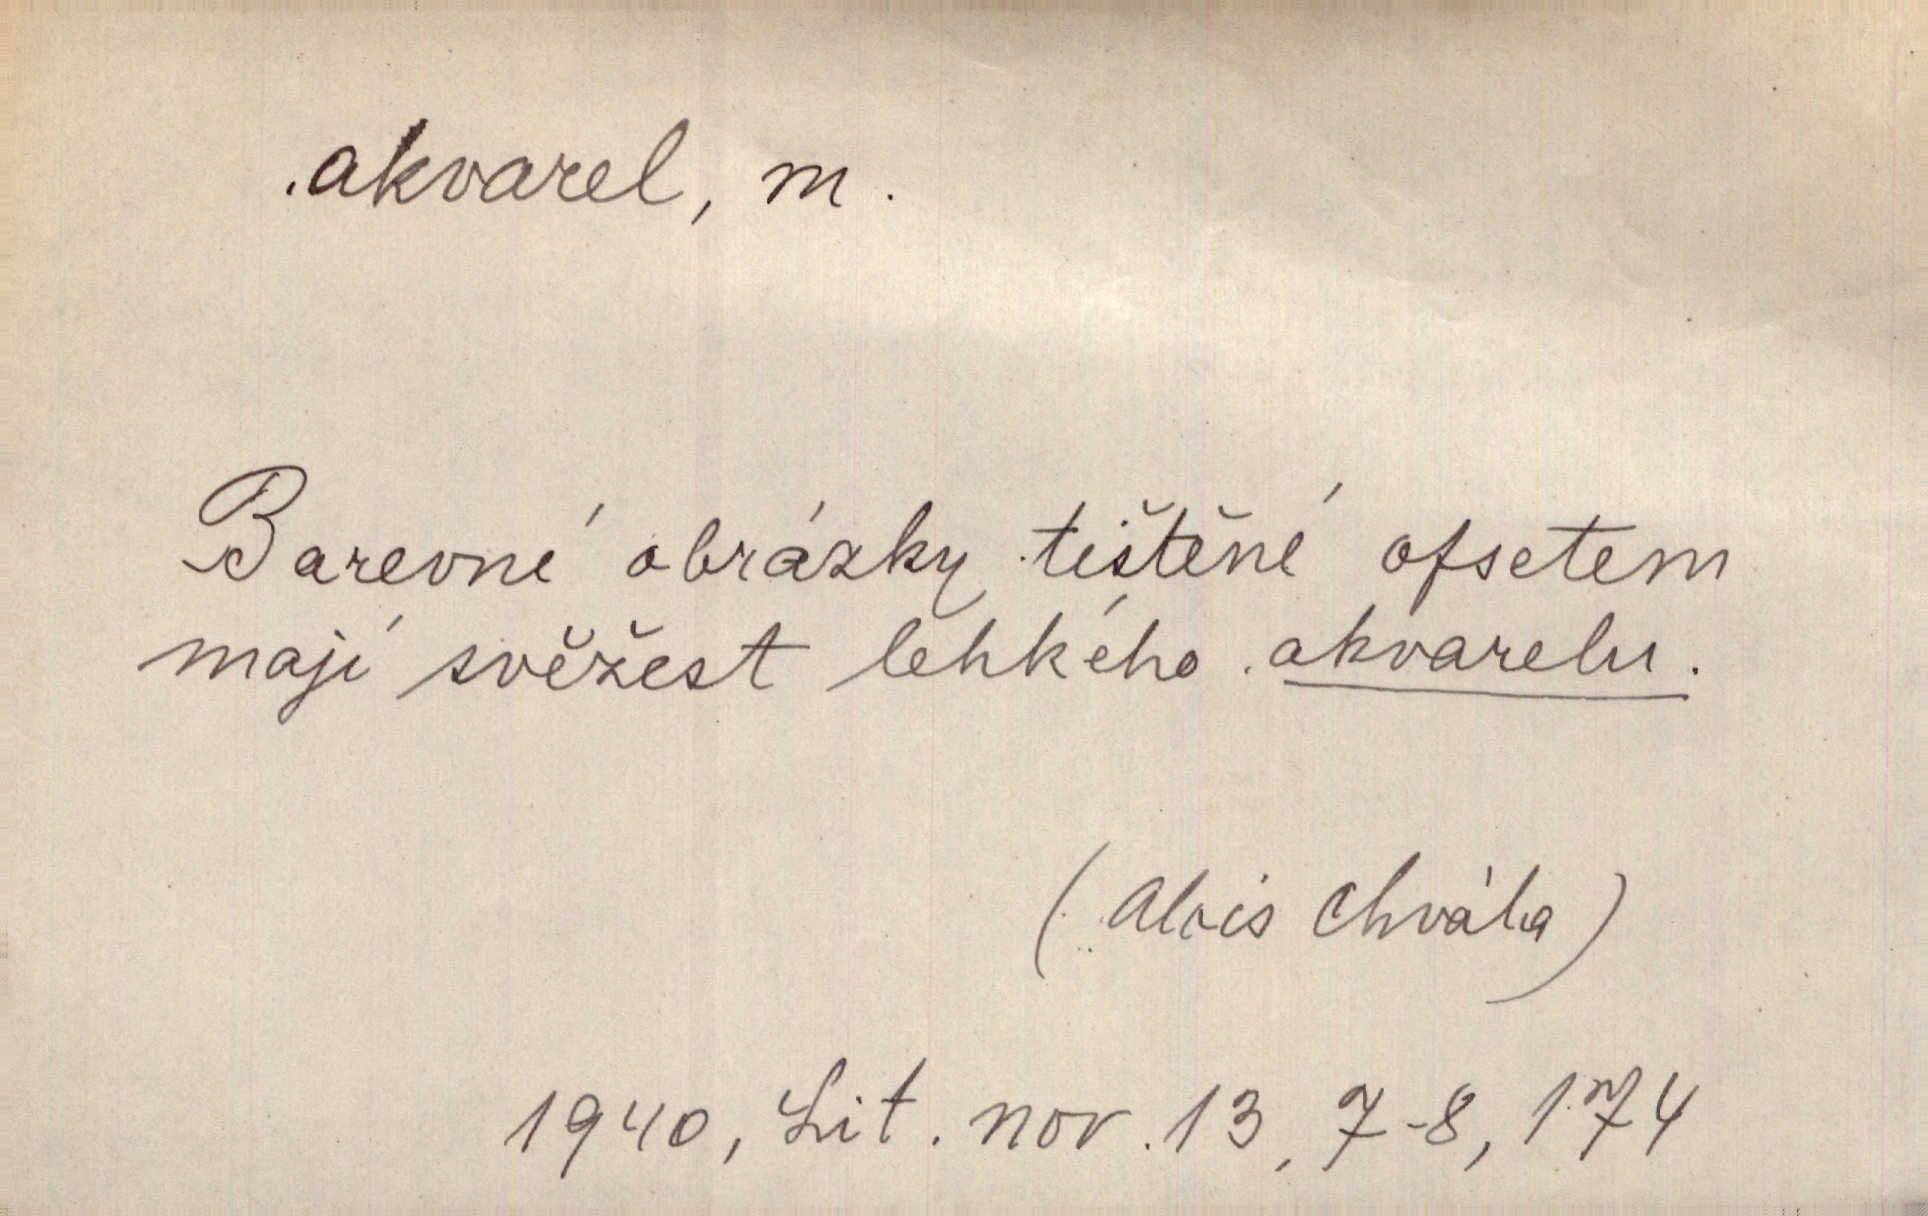 akvarel, m.
Barevné obrázky tištěné ofsetem
mají svěžest lehkého akvarelu.
(Alois Chvála)
1940, Lit. nov. 13, 7-8, 174